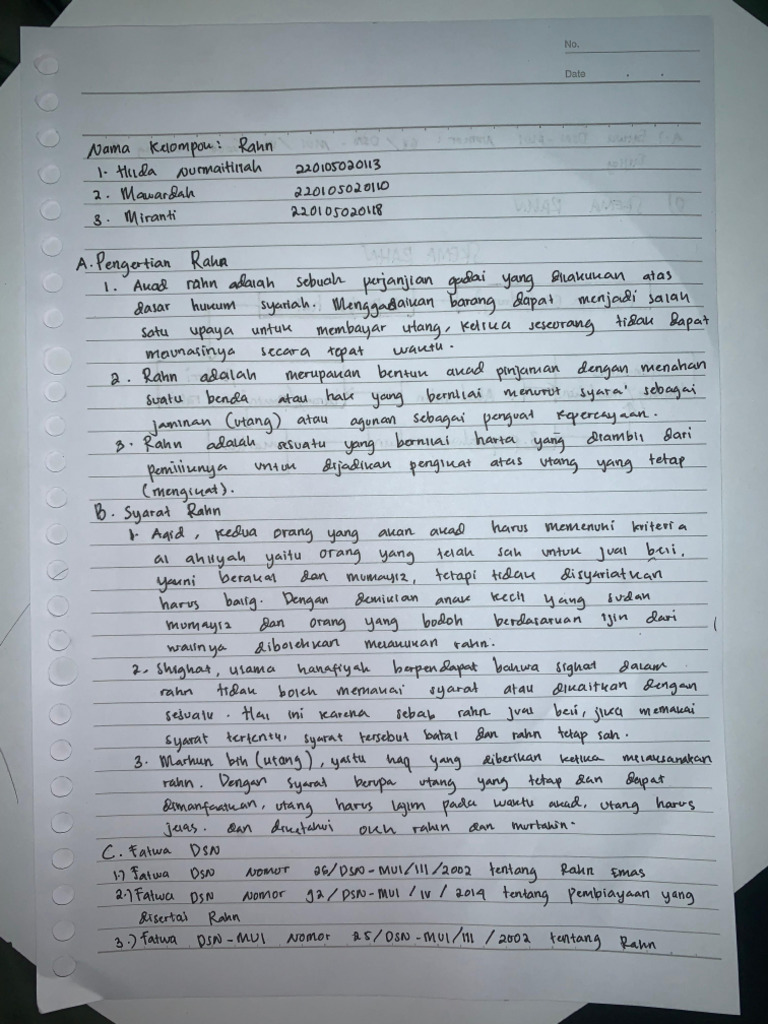 No.
Date
Nama Kelompok: Rahn
1. Hilda Nurmaitinah 220105020113
2. Mawardah 220105020110
3. Miranti 220105020118
A. Pengertian Rahn
1. Akad rahn adalah sebuah perjanjian gadai yang dilakukan atas
dasar hukum syariah. Menggadaikan barang dapat menjadi salah
satu upaya untuk membayar utang, ketika seseorang tidak dapat
melunasinya secara tepat waktu.
2. Rahn adalah merupakan bentuk akad pinjaman dengan menahan
suatu benda atau hak yang bernilai menurut syara' sebagai
jaminan (utang) atau agunan sebagai penguat kepercayaan.
3. Rahn adalah asuatu yang bernilai harta yang diambil dari
pemiliknya untuk dijadikan pengikat atas utang yang tetap
(mengikat).
B. Syarat Rahn
1. Aqid, kedua orang yang akan akad harus memenuhi kriteria
al ahliyah yaitu orang yang telah sah untuk jual beli,
yakni berakal dan mumayiz, tetapi tidak disyariatkan
harus balig. Dengan demikian anak kecil yang sudah
mumayiz dan orang yang bodoh berdasarkan ijin dari
walinya dibolehkan melakukan rahn.
2. Shighat, ulama hanafiyah berpendapat bahwa sighat dalam
rahn tidak boleh memakai syarat atau dikaitkan dengan
sesuatu. Hal ini karena sebab rahn jual beli, jika memakai
syarat tertentu, syarat tersebut batal dan rahn tetap sah.
3. Marhun bih (utang), yaitu haq yang diberikan ketika melaksanakan
rahn. Dengan syarat berupa utang yang tetap dan dapat
dimanfaatkan, utang harus lazim pada waktu akad, utang harus
jelas. dan diketahui oleh rahin dan murtahin.
C. Fatwa DSN
1.) Fatwa DSN Nomor 26/DSN-MUI/III/2002 tentang Rahn Emas
2.) Fatwa DSN Nomor 92/DSN-MUI/IV/2014 tentang Pembiayaan yang
disertai Rahn
3.) Fatwa DSN-MUI Nomor 25/DSN-MUI/III/2002 tentang Rahn